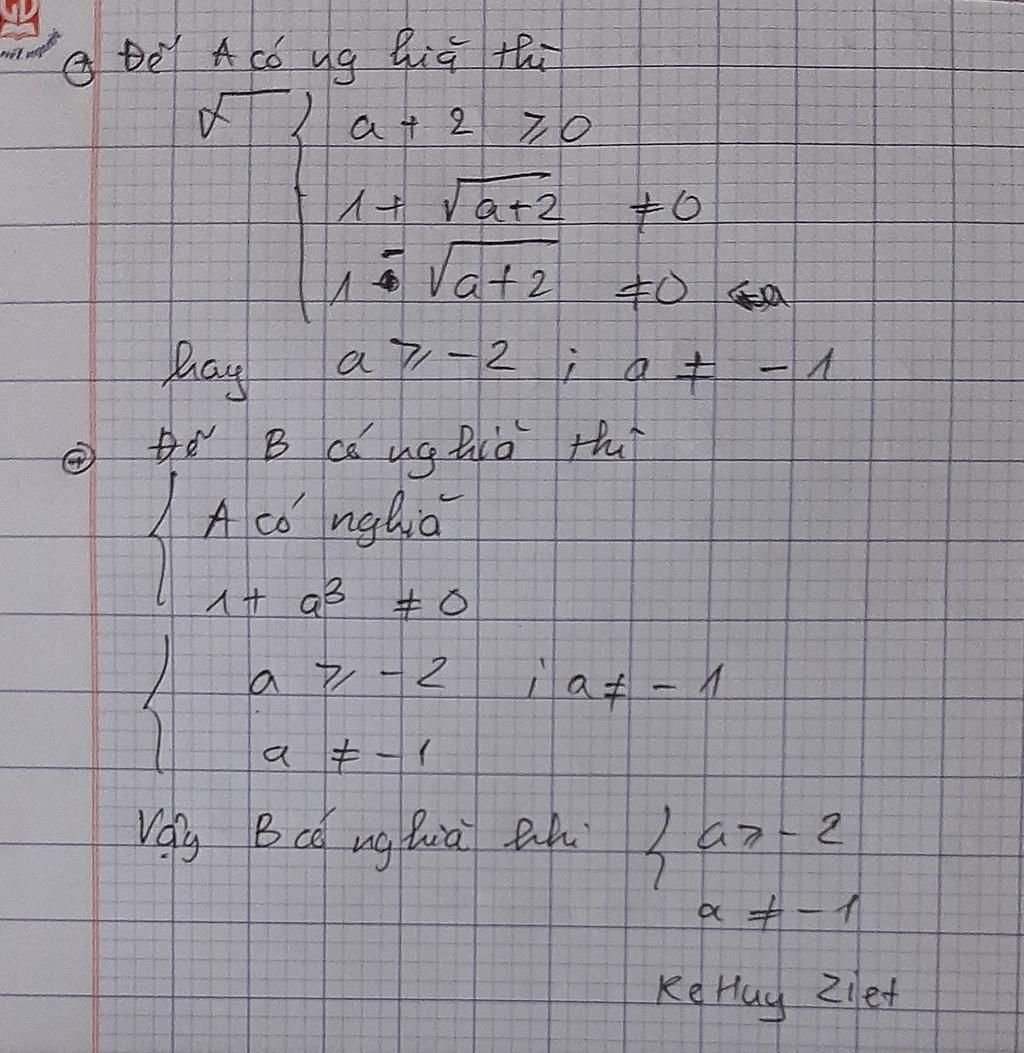 Để A có nghiã thì
√ { a + 2 ⩾ 0
1 + √(a+2) ≠ 0
1 - √(a+2) ≠ 0
hay a ⩾ -2 ; a ≠ -1
Để B có nghiã thì
{ A có nghiã
1 + a³ ≠ 0
{ a ⩾ -2 ; a ≠ -1
a ≠ -1
Vậy B có nghiã khi { a ⩾ -2
a ≠ -1
KeHuy Ziet